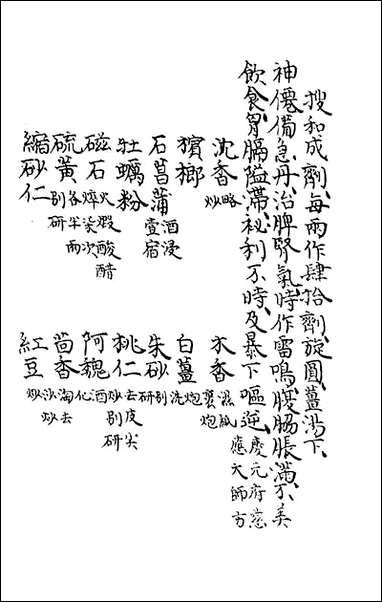 搜和成劑、每兩作肆拾劑、旋圓、薑湯下、
神僊備急丹、治脾腎氣、時作雷鳴、腹脇脹滿、不美
飲食、胃膈隘滯、秘利不時、及暴下嘔逆、慶元府慈應大師方
沈香略炒　木香濕紙裹炮
檳榔　白薑炮洗
石菖蒲酒浸壹宿　朱砂別研
牡蠣粉　桃仁去皮尖炒別研
磁石火煅酸醋焠柒次　阿魏酒化
硫黃別研各半兩　茴香淘去沙炒
縮砂仁　紅豆炒